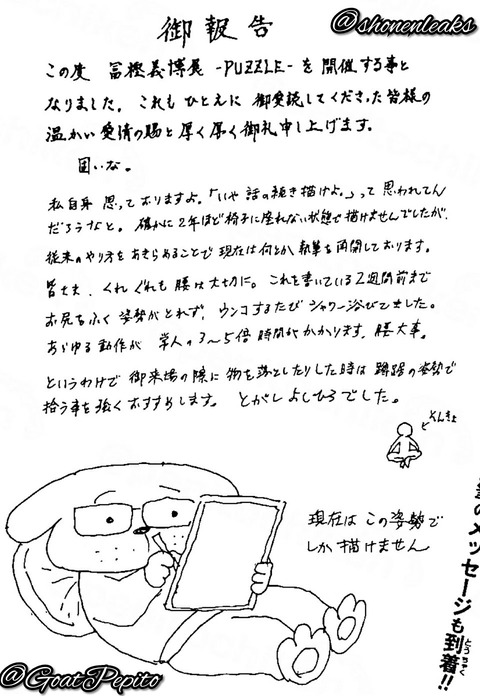 @shonenleaks
御報告
この度 冨樫義博展 -PUZZLE- を開催する事と
なりました。これもひとえに御愛読してくださった皆様の
温かい愛情の賜と厚く厚く御礼申し上げます。
固いな。
私自身 思っておりますよ。「いや 話の続き描けよ。」って思われてん
だろうなと。確かに2年ほど椅子に座れない状態で描けませんでしたが、
従来のやり方をあきらめることで現在は何とか執筆を再開しております。
皆さま、くれぐれも腰は大切に。これを書いている2週間前まで
お尻をふく姿勢がとれず、ウンコするたびシャワー浴びてました。
あらゆる動作が 常人の3〜5倍時間がかかります。腰大事。
というわけで 御来場の際に物を落としたりした時は 蹲踞の姿勢で
拾う事を強くおすすめします。 とがしよしひろでした。
そんきょ
現在はこの姿勢で
しか描けません
筆のメッセージも到着!!
とうちゃく
@GoatPepito